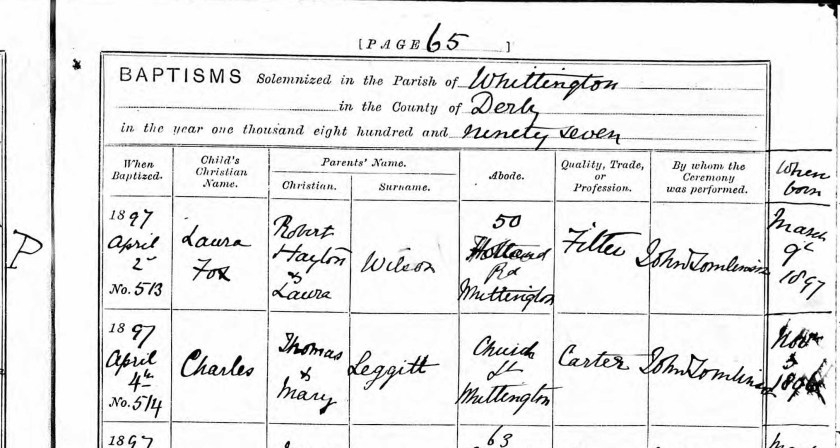 [PAGE 65]
BAPTISMS Solemnized in the Parish of Whittington
in the County of Derby
in the year one thousand eight hundred and ninety seven
When Baptized. Child's Christian Name. Parents' Name. Christian. Surname. Abode. Quality, Trade, or Profession. By whom the Ceremony was performed. When born
P
1897 April 2 No. 513
Laura Fox
Robert Hayton & Laura
Wilson
50 Holland Rd Whittington
Fitter
John Tomlinson
March 9th 1897
1897 April 4th No. 514
Charles
Thomas & Mary
Leggitt
Church St Whittington
Carter
John Tomlinson
Novr
1897
63